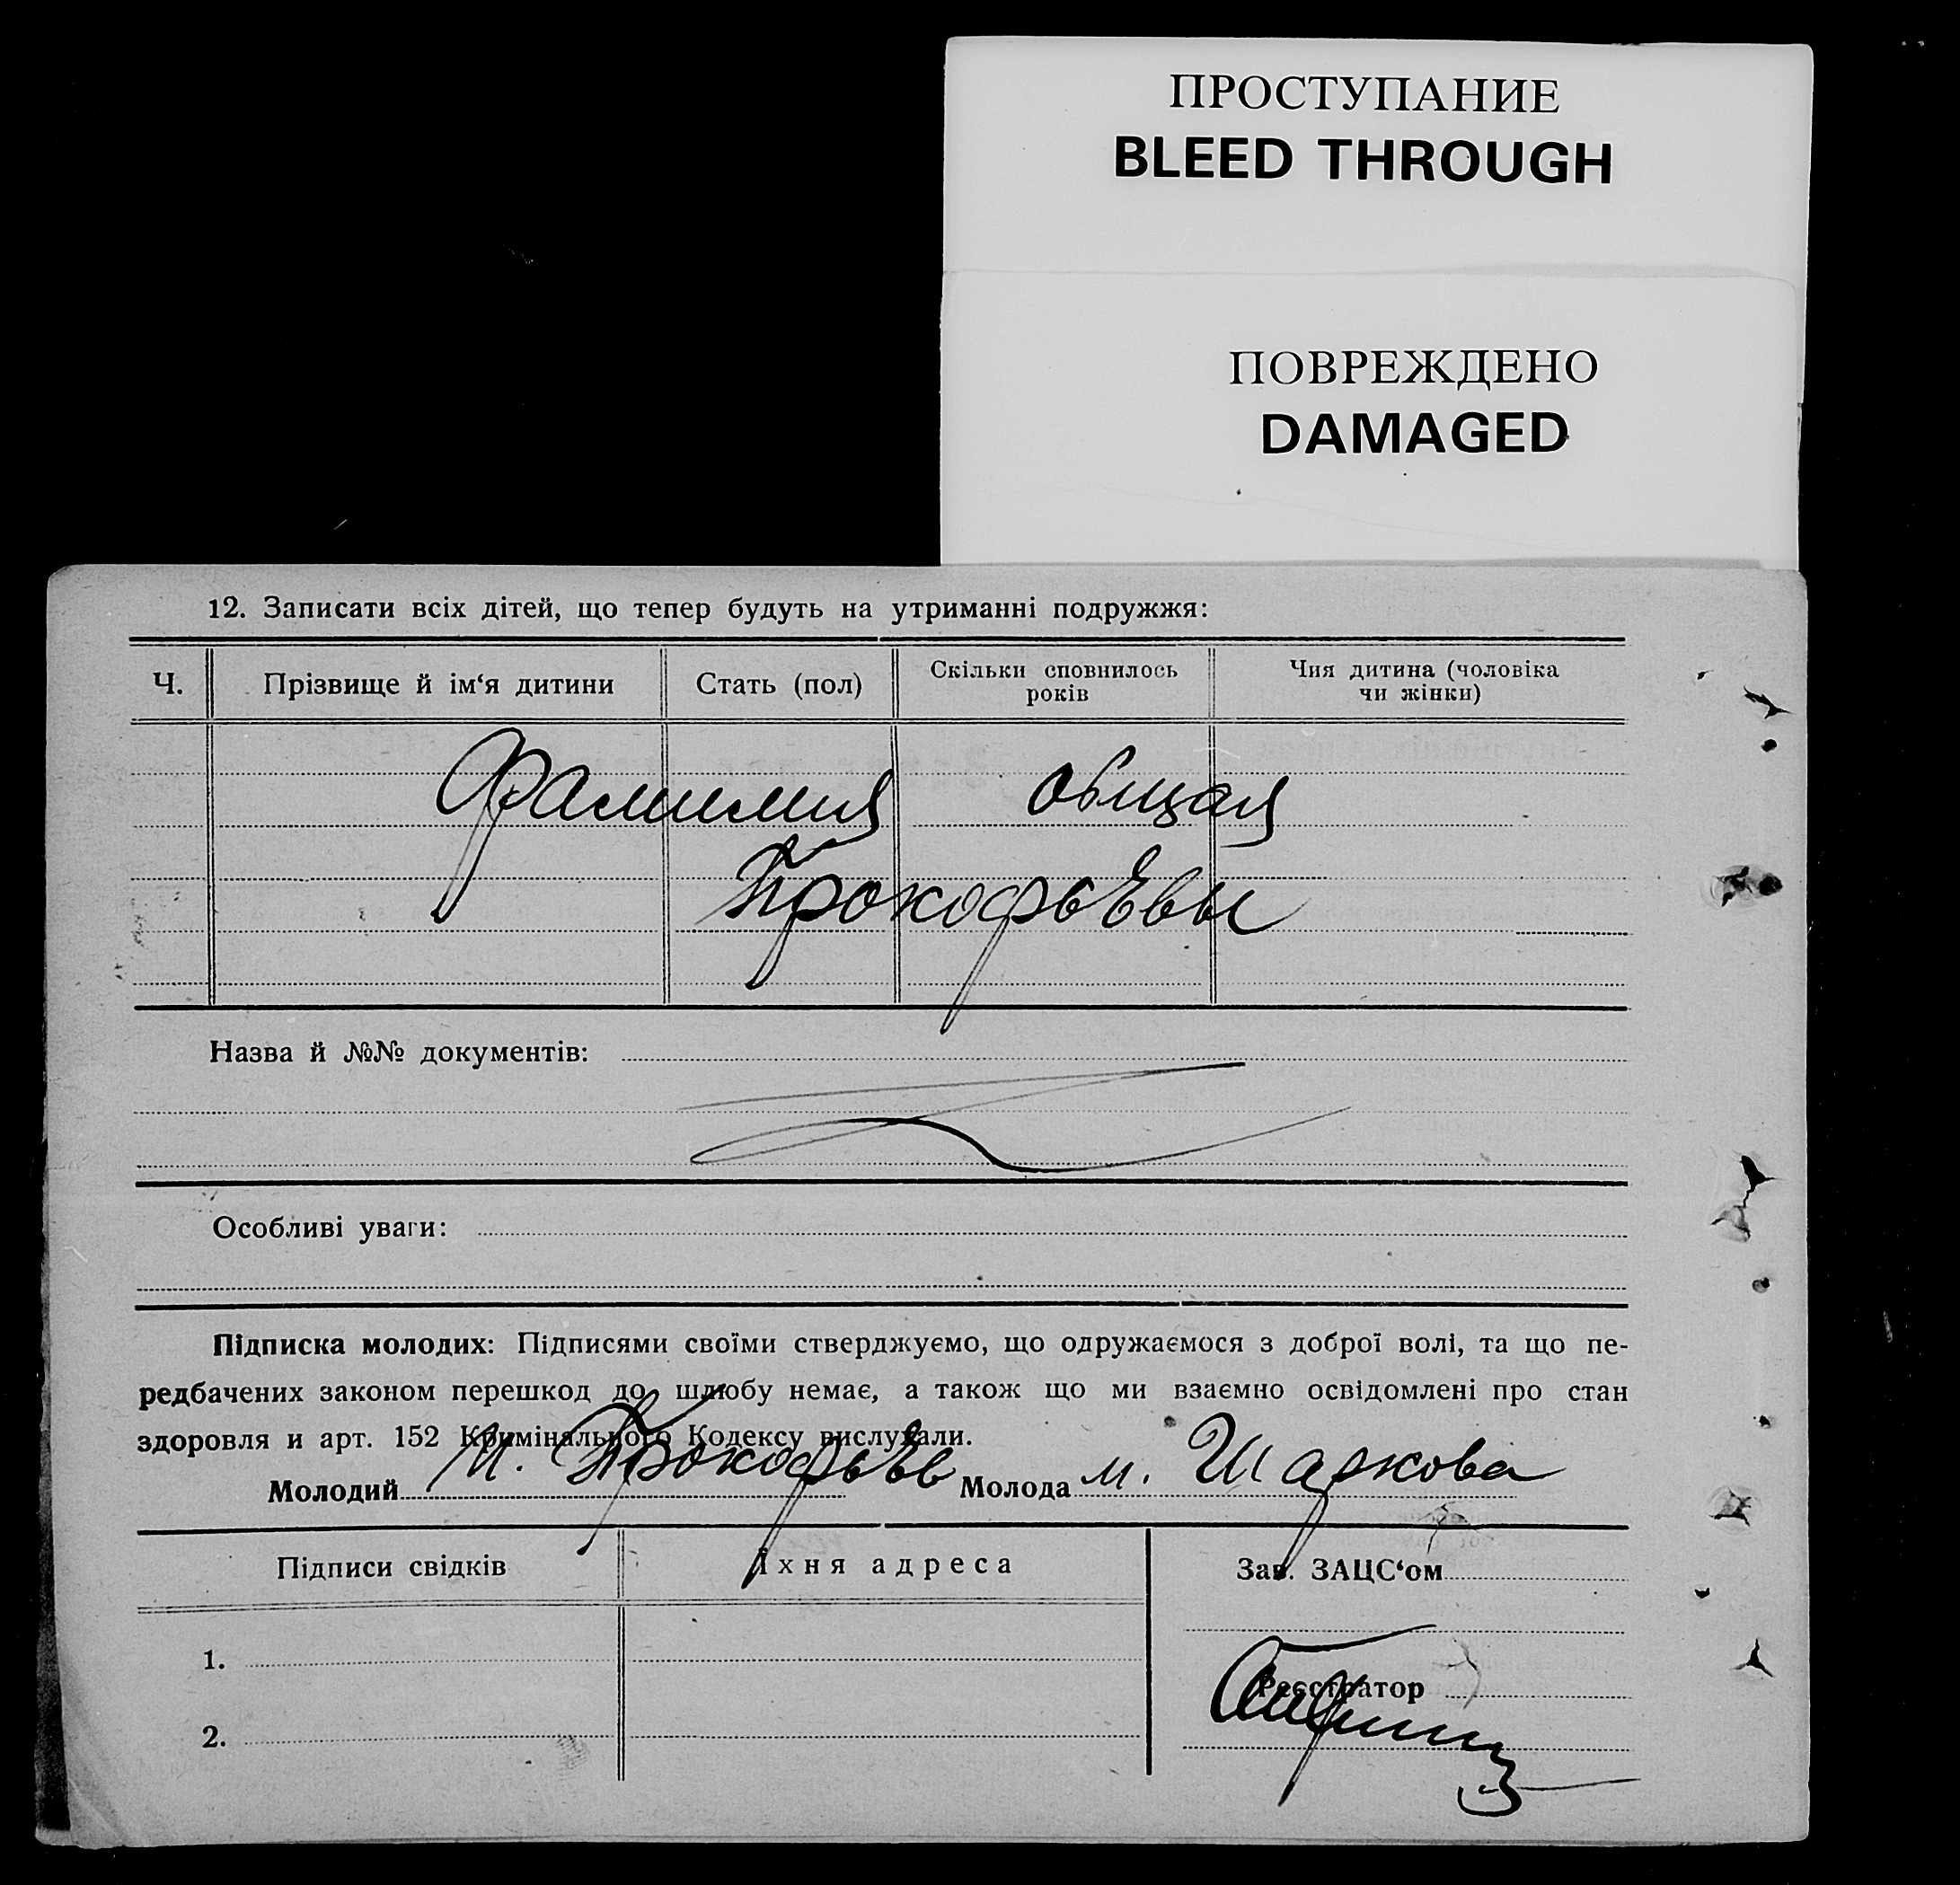 ПРОСТУПАНИЕ
BLEED THROUGH
ПОВРЕЖДЕНО
DAMAGED
12. Записати всіх дітей, що тепер будуть на утриманні подружжя:
Ч. Прізвище й ім‘я дитини Стать (пол) Скільки сповнилось років Чия дитина (чоловіка чи жінки)
Фамилия общая
Прокофьевы
Назва й №№ документів:
Особливі уваги:
Підписка молодих: Підписями своїми стверджуємо, що одружаємося з доброї волі, та що пе-
редбачених законом перешкод до шлюбу немає, а також що ми взаємно освідомлені про стан
здоровля и арт. 152 Кримінального Кодексу вислухали.
Молодий И. Прокофьев Молода М. Шаркова
Підписи свідків Їхня адреса Зав. ЗАЦС‘ом
1.
Реєстратор
2.